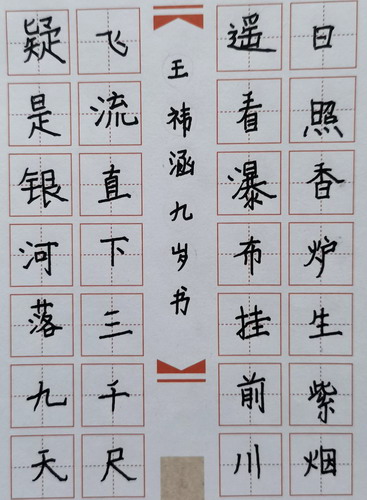 日照香炉生紫烟
遥看瀑布挂前川
飞流直下三千尺
疑是银河落九天
王祎涵九岁书